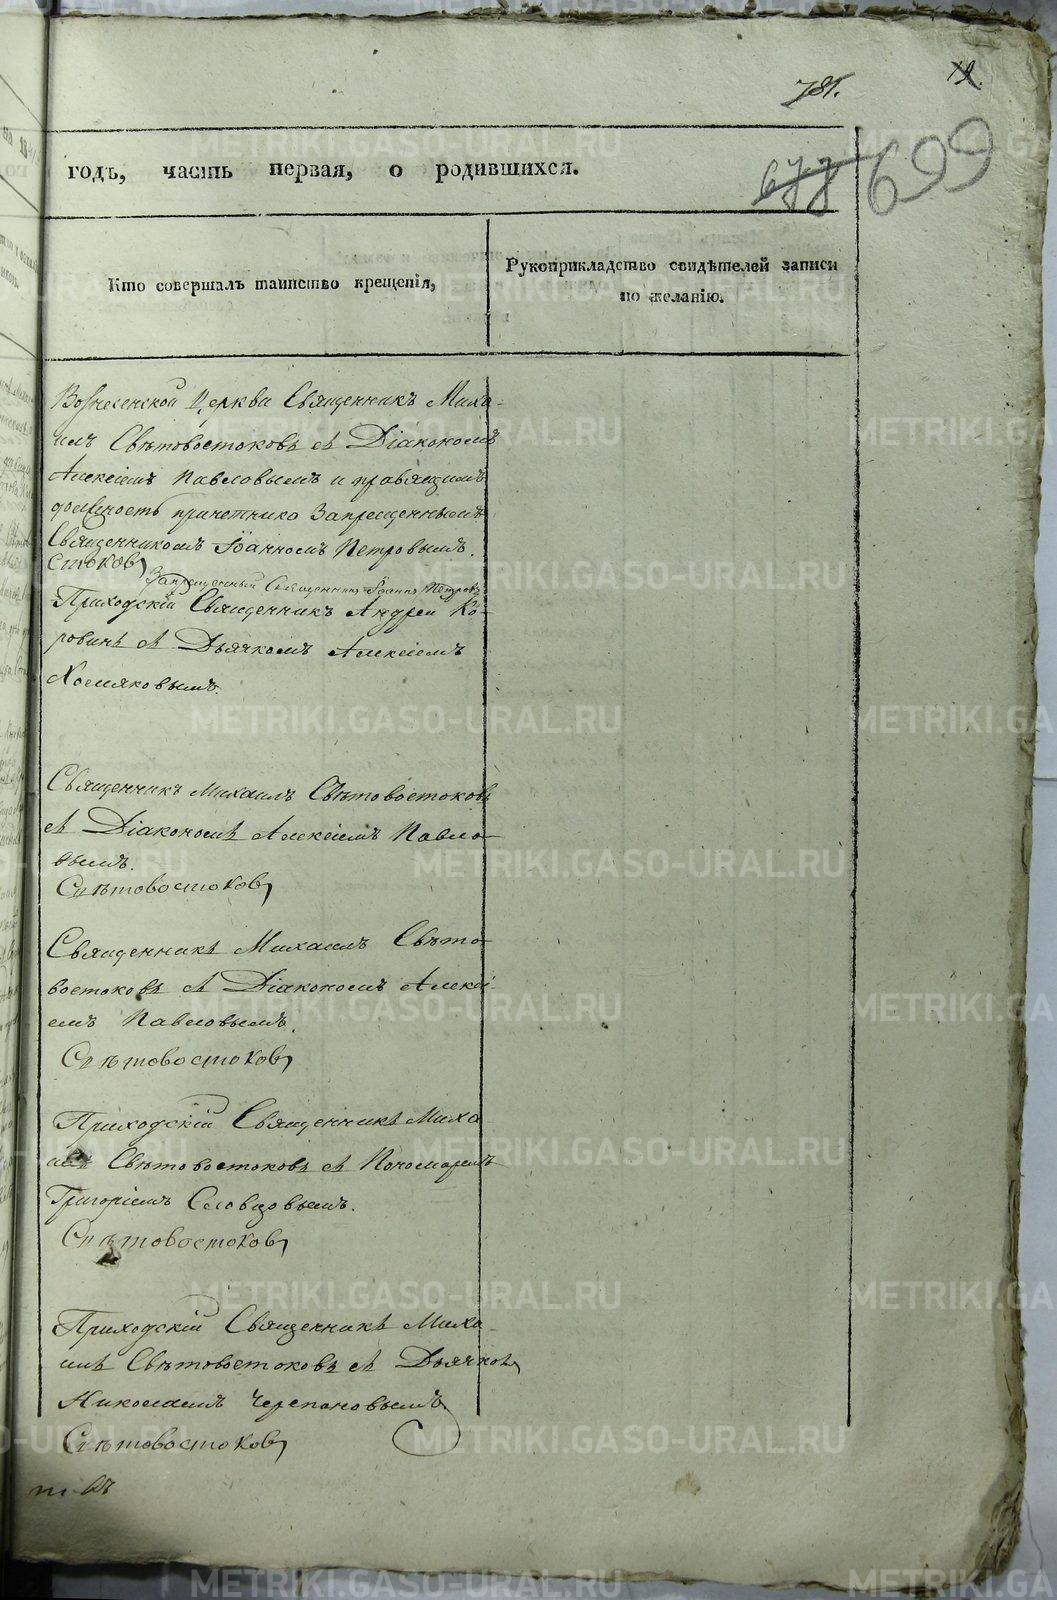 781.
12.
677
699
годъ, часть первая, о родившихся.
Кто совершалъ таинство крещенія,
Рукоприкладство свидѣтелей записи
по желанію.
Вознесенской Церкви Священникъ Миха-
илъ Свѣтовостоковъ съ Діакономъ
Алексіемъ Павловымъ и правящимъ
должность причетника Запрещеннымъ
Священникомъ Іоанномъ Петровымъ.
стоковъ
Запрещенный Священникъ Іоаннъ Петровъ
Приходскій Священникъ Андрей Ко-
ровинъ съ Дьячкомъ Алексіемъ
Хомяковымъ.
Священникъ Михаилъ Свѣтовостоковъ
съ Діакономъ Алексіемъ Павло-
вымъ.
Свѣтовостоковъ
Священникъ Михаилъ Свѣто-
востоковъ съ Діакономъ Алексі-
емъ Павловымъ.
Свѣтовостоковъ
Приходскій Священникъ Миха
илъ Свѣтовостоковъ съ Пономаремъ
Григоріемъ Словцовымъ.
Свѣтовостоковъ
Приходскій Священникъ Миха-
илъ Свѣтовостоковъ съ Дьячкомъ
Николаемъ Черепановымъ.
Свѣтовостоковъ
METRIKI.GASO-URAL.RU